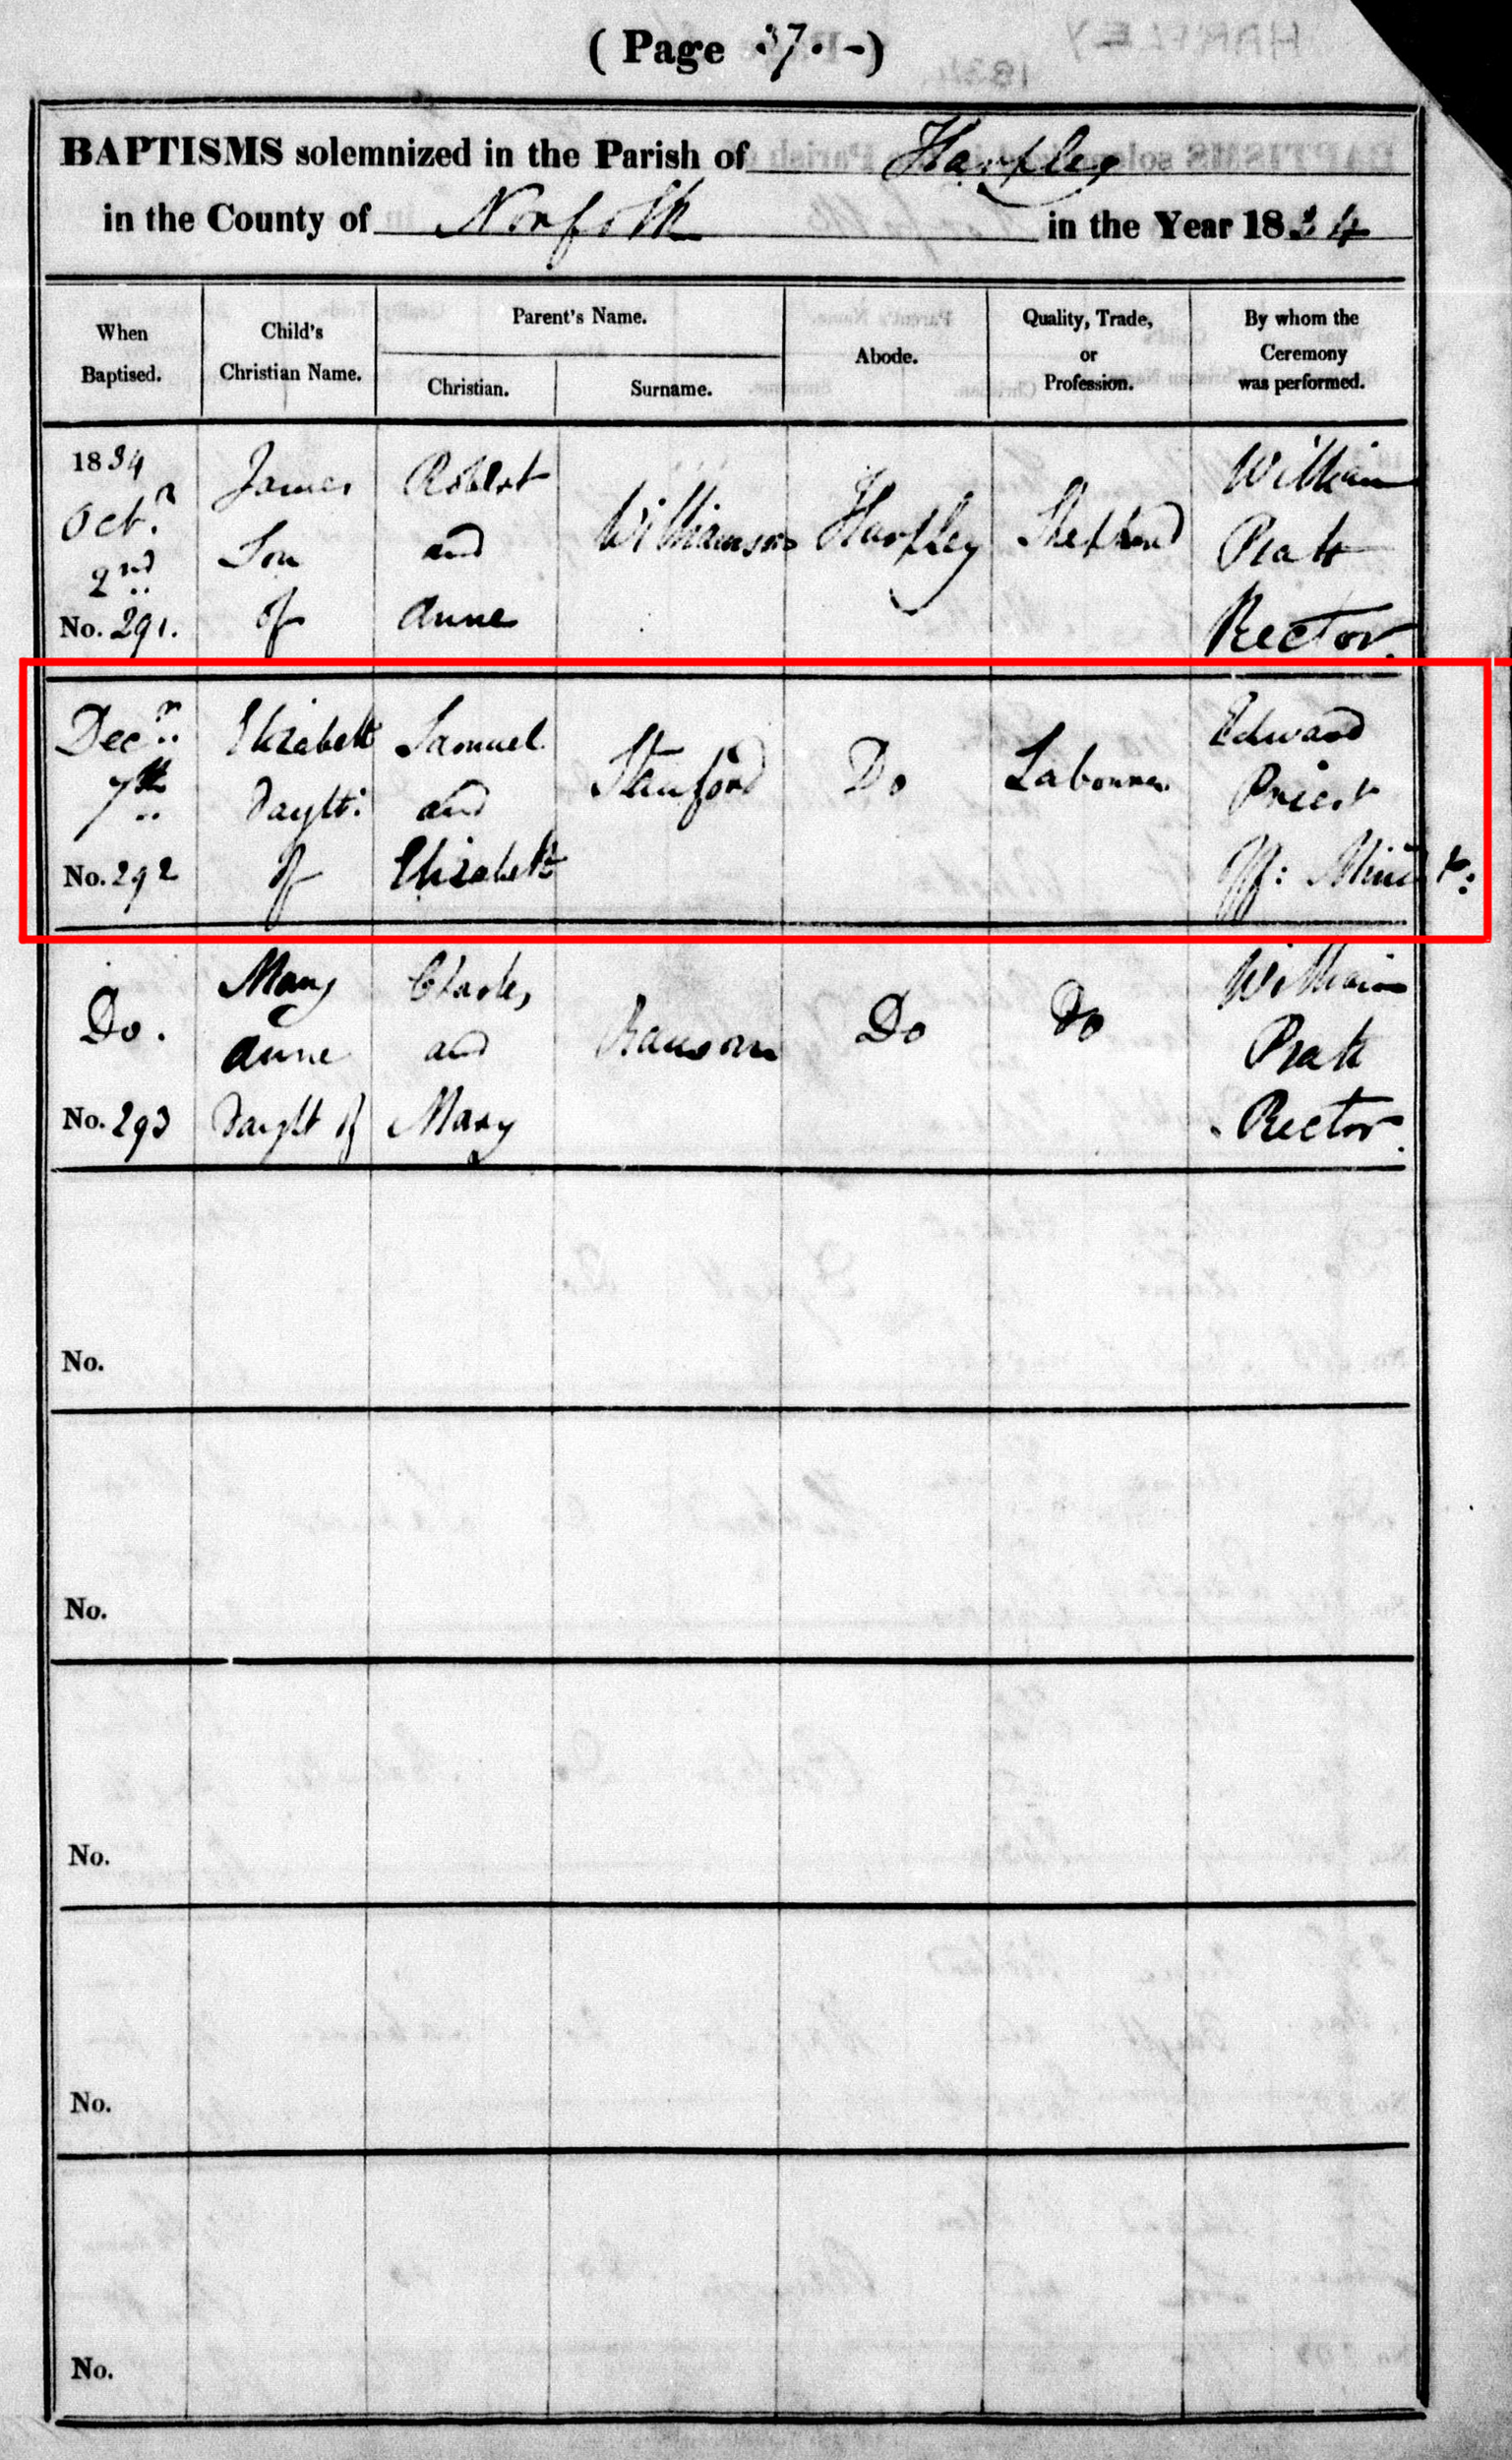 ( Page 37. - )
BAPTISMS solemnized in the Parish of Harpley
in the County of Norfolk in the Year 1834
When Baptised.
Child's Christian Name.
Parent's Name.
Christian.
Surname.
Abode.
Quality, Trade, or Profession.
By whom the Ceremony was performed.
1834 Octr. 2nd No. 291.
James Son of
Robert and Anne
Williamson
Harpley
Shepherd
William Pratt Rector.
Decr. 7th No. 292
Elizabeth Daught: of
Samuel and Elizabeth
Stanford
Do
Labourer
Edward Priest Off: Ministr:
Do. No. 293
Mary Anne Daught of
Charles and Mary
Ransom
Do
Do
William Pratt Rector.
No.
No.
No.
No.
No.